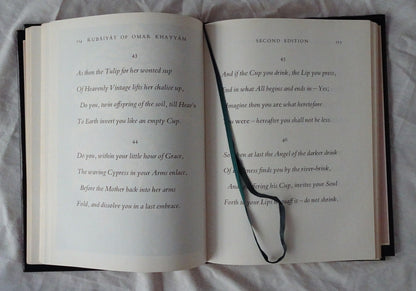 114 RUBÁIYÁT OF OMAR KHAYYÁM
43
As then the Tulip for her wonted sup
Of Heavenly Vintage lifts her chalice up,
Do you, twin offspring of the soil, till Heav'n
To Earth invert you like an empty Cup.
44
Do you, within your little hour of Grace,
The waving Cypress in your Arms enlace,
Before the Mother back into her arms
Fold, and dissolve you in a last embrace.
SECOND EDITION
45
And if the Cup you drink, the Lip you press,
End in what All begins and ends in—Yes;
Imagine then you are what heretofore
You were—hereafter you shall not be less.
46
So when at last the Angel of the darker drink
Of Darkness finds you by the river-brink,
And, offering his Cup, invites your Soul
Forth to your Lips to quaff it—do not shrink.